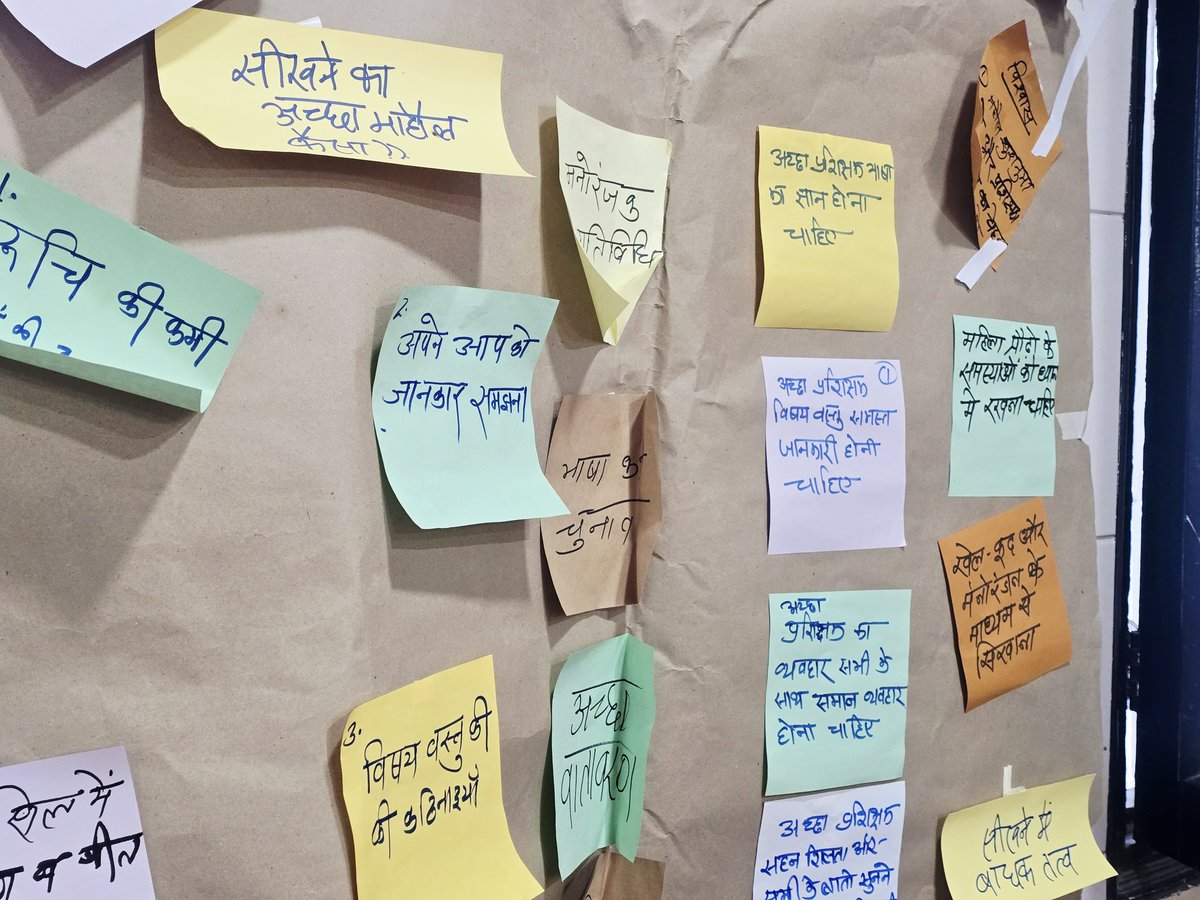 सीखने का
अच्छा माहौल
कैसा ??
रूचि की कमी
की
2.
अपने आप को
जानकार समझना
3.
विषय वस्तु की
की कठिनाइयाँ
खेल में
व गीत
मनोरंजक
गतिविधि
भाषा का
चुनाव
अच्छा
वातावरण
अच्छा प्रशिक्षक भाषा
का ज्ञान होना
चाहिए
अच्छा प्रशिक्षक ①
विषय वस्तु समस्त
जानकारी होनी
चाहिए
अच्छा
प्रशिक्षक का
व्यवहार सभी के
साथ समान व्यवहार
होना चाहिए
अच्छा प्रशिक्षक
सहन शिलता और
सभी के बातो सुनने
विश्वास
महिला प्रौढ़ो के
समस्याओं को ध्यान
मे रखना चाहिए
खेल-कूद और
मनोरंजन के
माध्यम से
सिखाना
सीखने में
बाधक तत्व